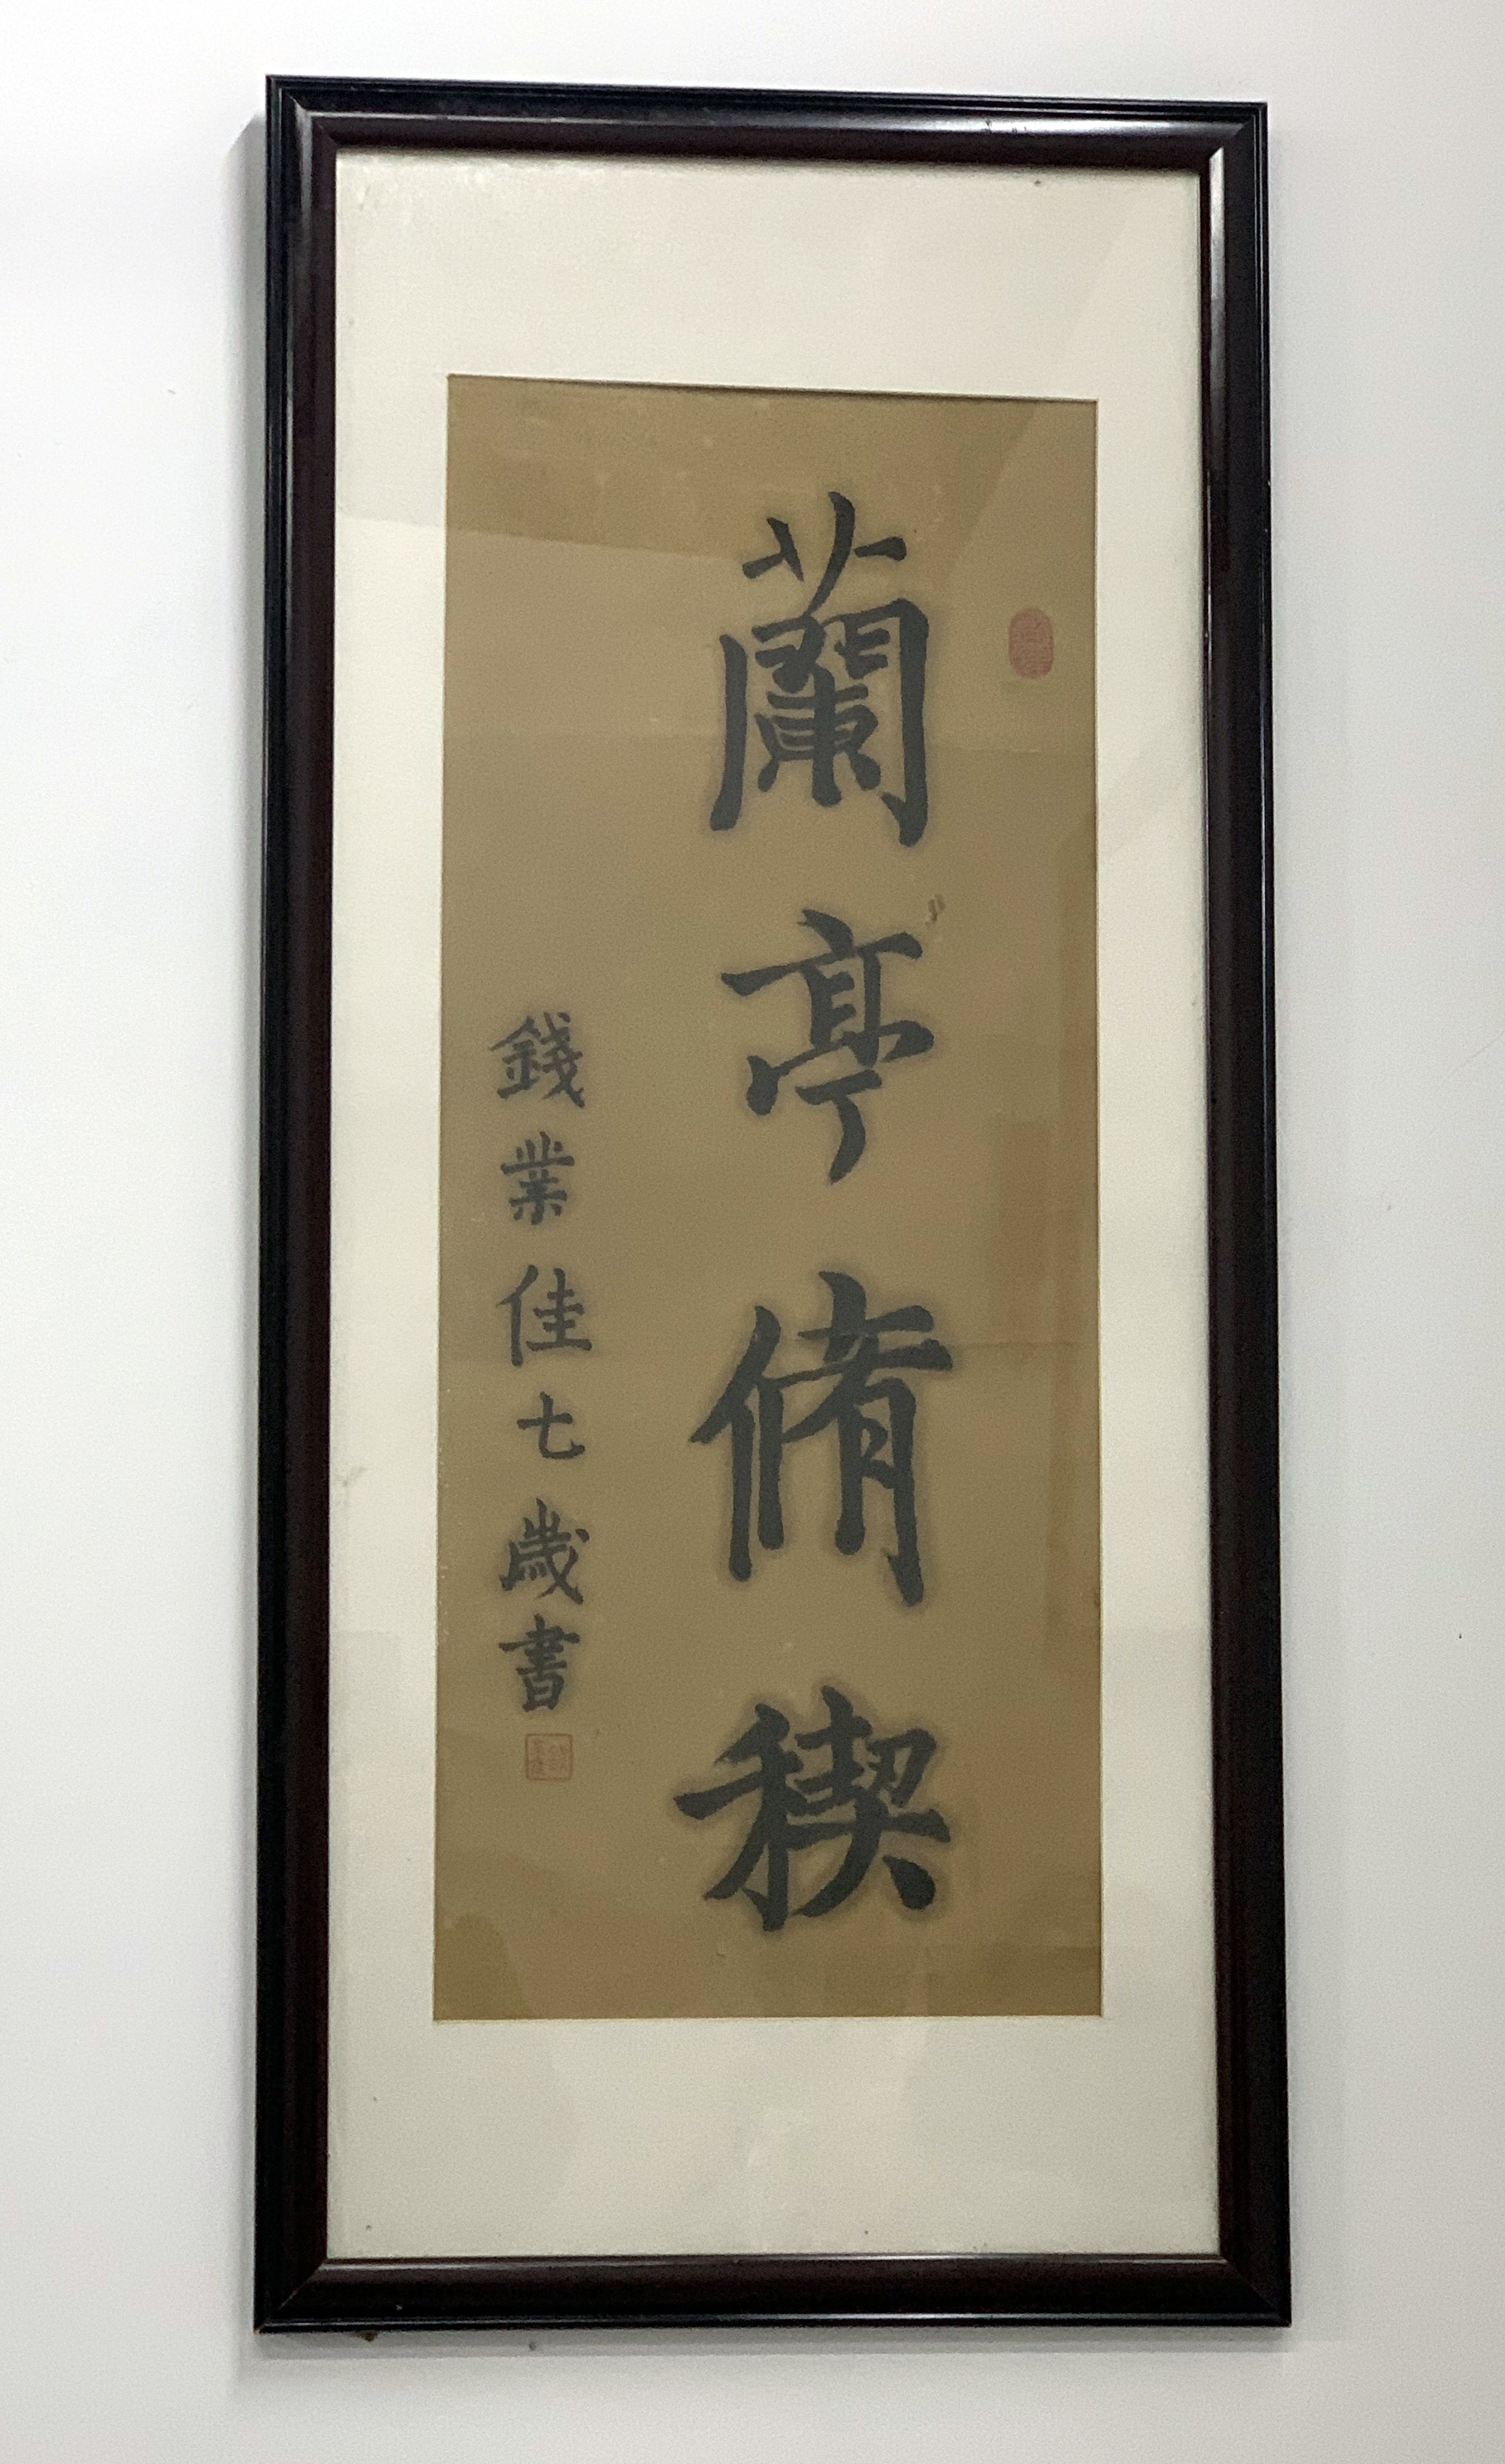 蘭亭脩稧
錢業佳七歲書